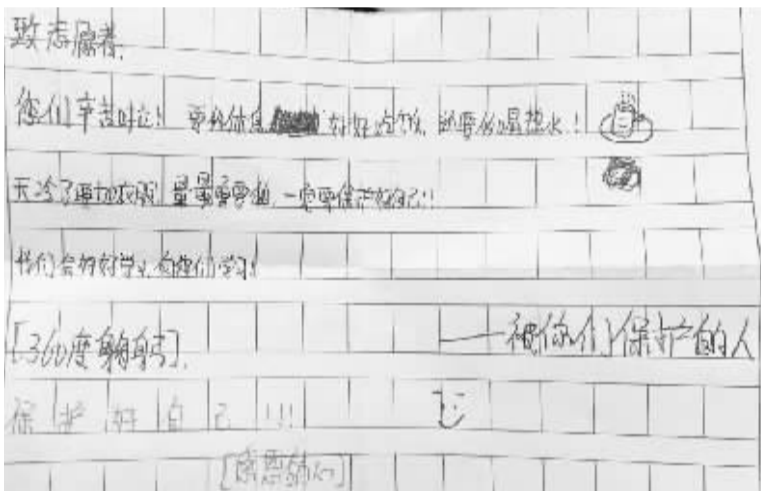 致志愿者,
您们辛苦啦! 要好休息 好好吃饭, 还要多喝热水!
天冷了要加衣服, 一定要保护好自己!!
我们会好好学习,向您们学习!
[360度鞠躬].
——被你们保护的人
保护好自己!!!